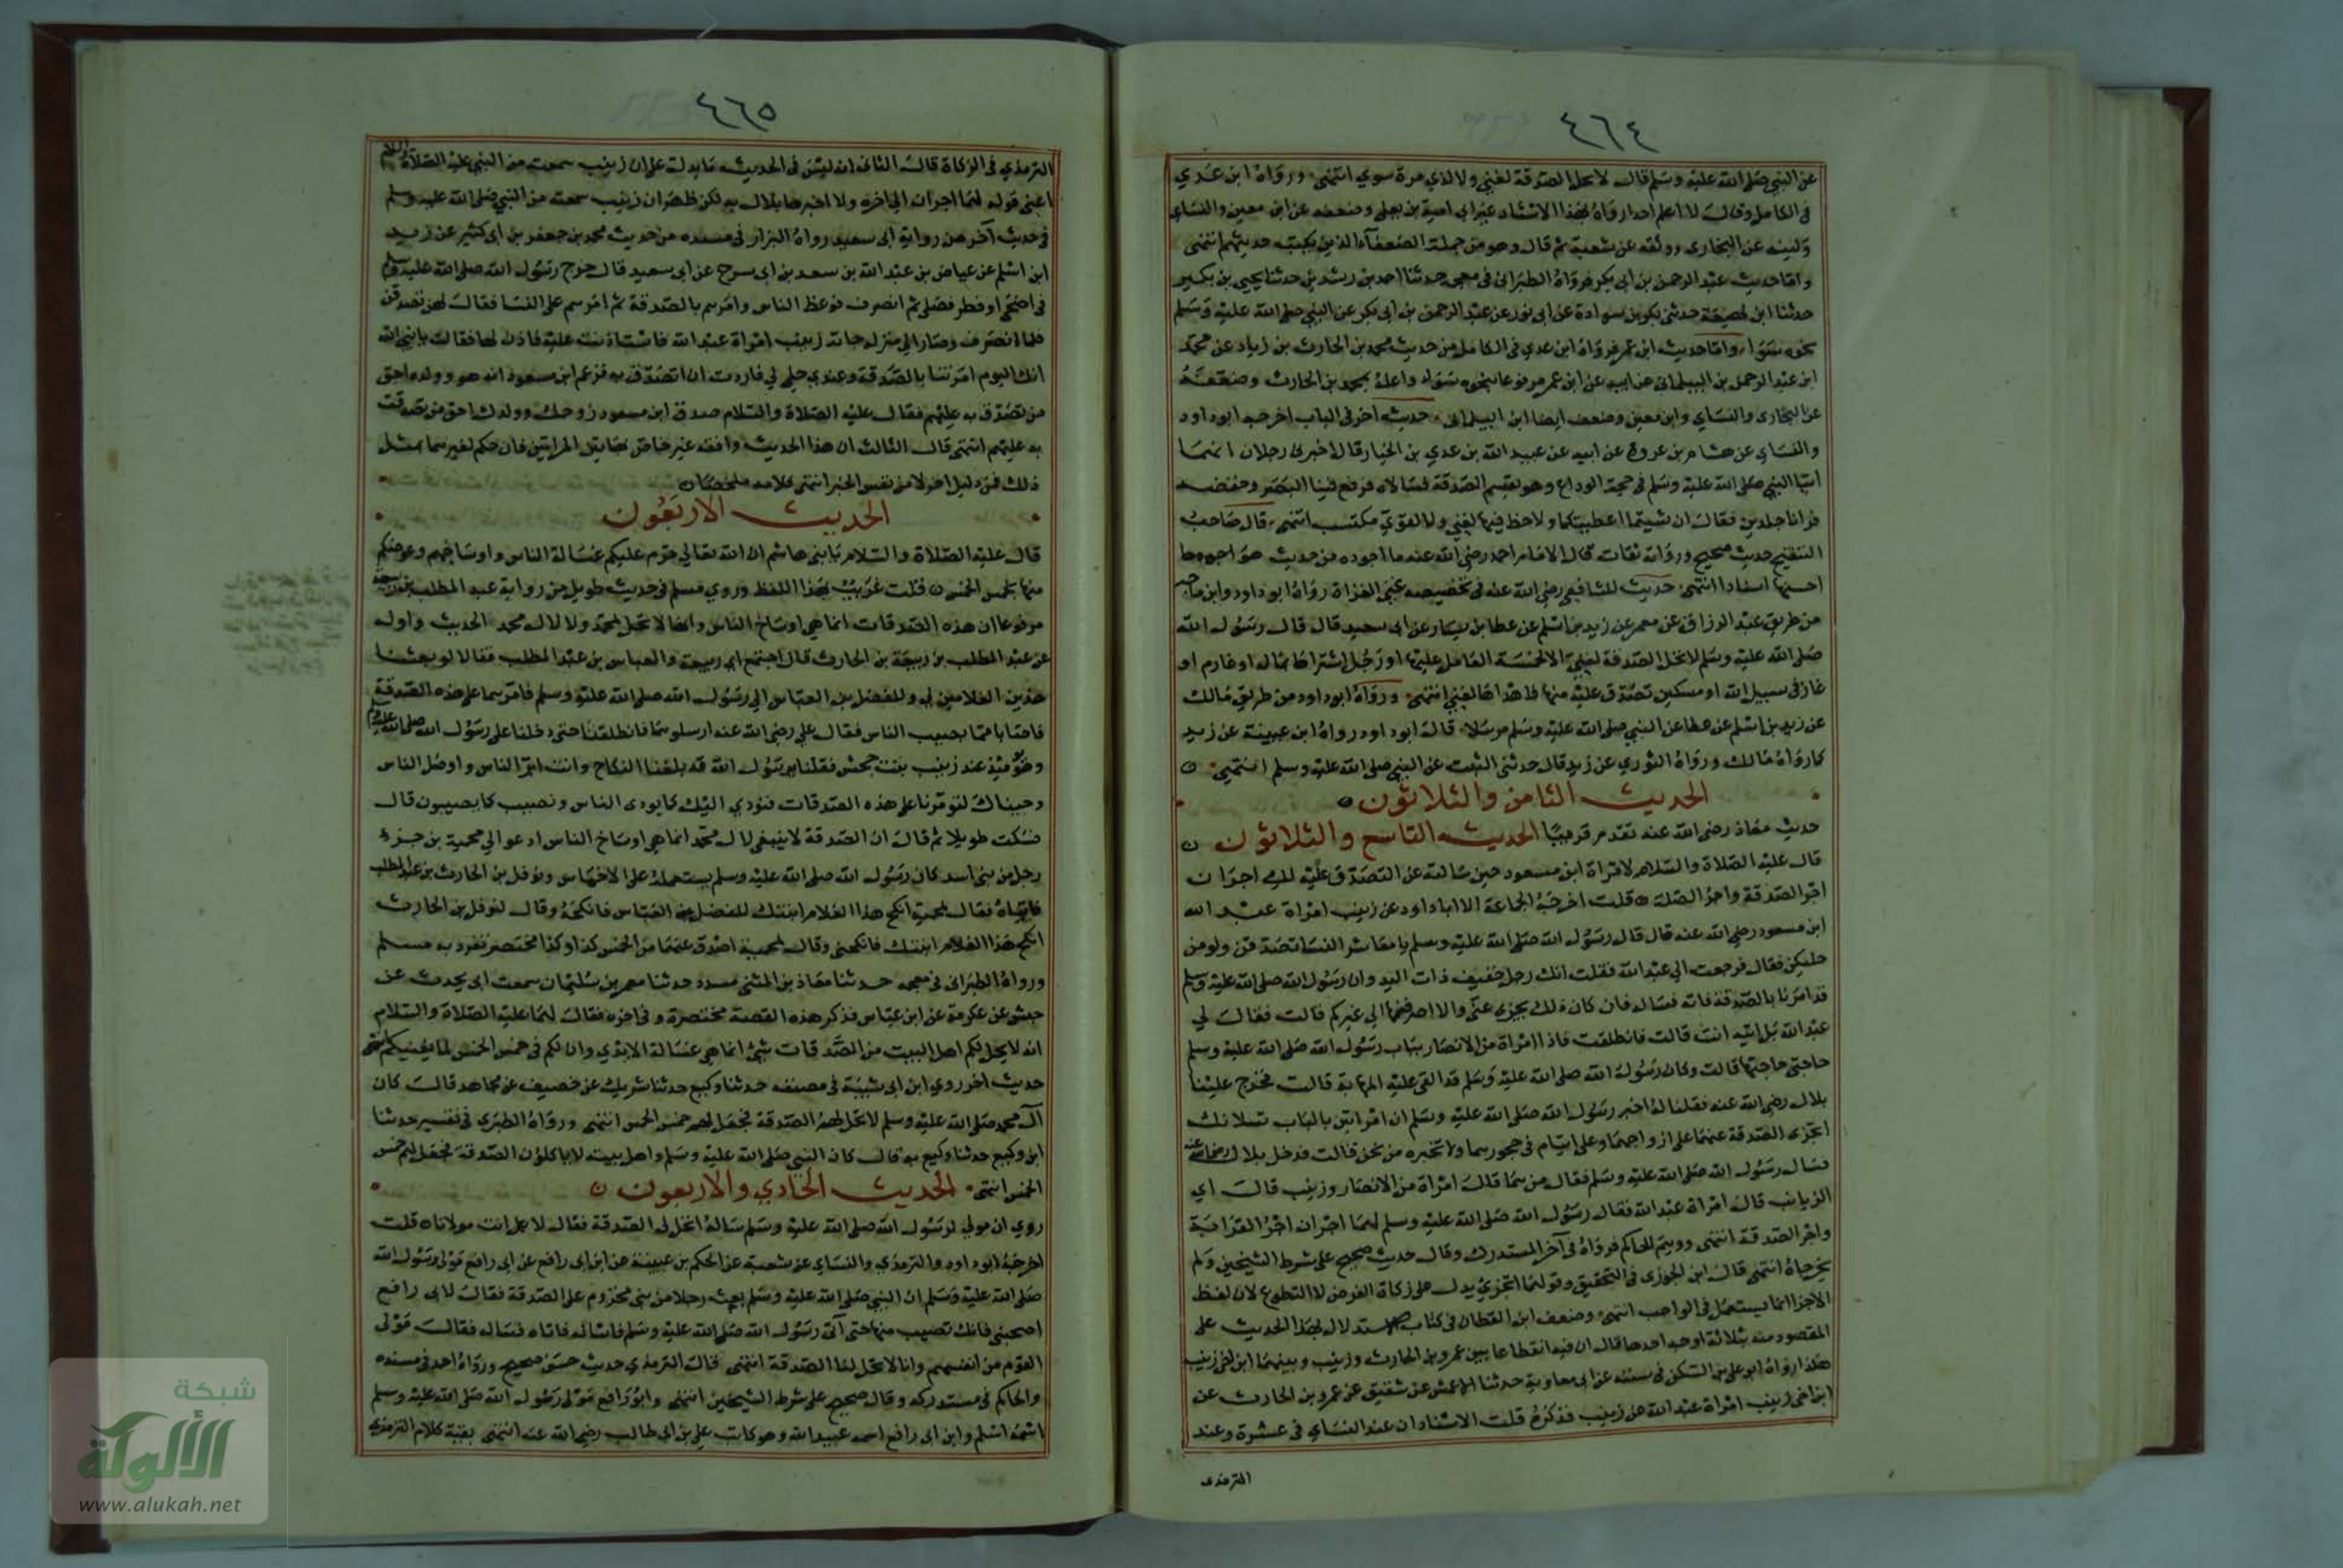 ٤٦٤
عن النبي صلى الله عليه وسلم قال لا تحل الصدقة لغني ولا لذي مرة سوي انتهى ورواه ابن عدي
في الكامل وقال لا اعلم احدا رواه بهذا الاسناد غير ابي امية بن يعلى وضعفه عن ابن معين والنساي
ولينه عن البخاري ووثقه عن شعبة ثم قال وهو من جملة الضعفاء الذين يكتب حديثهم انتهى
واما حديث عبد الرحمن بن ابي بكر فرواه الطبراني في معجمه حدثنا احمد بن رشدين حدثنا يحيى بن بكير
حدثنا ابن لهيعة حدثني بكر بن سوادة عن ابي ثور عن عبد الرحمن بن ابي بكر عن النبي صلى الله عليه وسلم
نحوه سواء واما حديث ابن عمر فرواه ابن عدي في الكامل من حديث محمد بن الحارث بن زياد عن محمد
ابن عبد الرحمن بن البيلماني عن ابيه عن ابن عمر مرفوعا نحوه سواء واعله بمحمد بن الحارث وضعفه
عن البخاري والنساي وابن معين وضعف ايضا ابن البيلماني حديث اخر في الباب اخرجه ابو داود
والنساي عن هشام بن عروة عن ابيه عن عبيد الله بن عدي بن الخيار قال اخبرني رجلان انهما
اتيا النبي صلى الله عليه وسلم في حجة الوداع وهو يقسم الصدقة فسالاه فرفع فينا البصر وخفضه
فرانا جلدين فقال ان شيتما اعطيتكما ولا حظ فيها لغني ولا لقوي مكتسب انتهى قال صاحب
التنقيح حديث صحيح ورواته ثقات قال الامام احمد رضي الله عنه ما اجوده من حديث هو اجودها
احسنها اسنادا انتهى حديث للشافعي رضي الله عنه في تخصيصه غني الغزاة رواه ابو داود وابن ماجه
من طريق عبد الرزاق عن معمر عن زيد بن اسلم عن عطا بن يسار عن ابي سعيد قال قال رسول الله
صلى الله عليه وسلم لا تحل الصدقة لغني الا لخمسة العامل عليها او رجل اشتراها بماله او غارم او
غاز في سبيل الله او مسكين تصدق عليه منها فاهداها لغني انتهى ورواه ابو داود من طريق مالك
عن زيد بن اسلم عن عطا عن النبي صلى الله عليه وسلم مرسلا قال ابو داود رواه ابن عيينة عن زيد
كما رواه مالك ورواه الثوري عن زيد قال حدثني الثبت عن النبي صلى الله عليه وسلم انتهى
الحديث الثامن والثلاثون
حديث معاذ رضي الله عنه تقدم قريبا الحديث التاسع والثلاثون
قال عليه الصلاة والسلام لامراة ابن مسعود حين سالته عن التصدق عليه لك اجران
اجر الصدقة واجر الصلة قلت اخرجه الجماعة الا ابا داود عن زينب امراة عبد الله
ابن مسعود رضي الله عنه قال قال رسول الله صلى الله عليه وسلم يا معاشر النسا تصدقن ولو من
حليكن فقال فرجعت الي عبد الله فقلت انك رجل خفيف ذات اليد وان رسول الله صلى الله عليه وسلم
قد امرنا بالصدقة فاته فساله فان كان ذلك يجزى عني والا صرفتها الي غيركم قالت فقال لي
عبد الله بل ائتيه انت قالت فانطلقت فاذا امراة من الانصار بباب رسول الله صلى الله عليه وسلم
حاجتي حاجتها قالت وكان رسول الله صلى الله عليه وسلم قد القى عليه المهابة قالت فخرج علينا
بلال رضي الله عنه فقلنا له اخبر رسول الله صلى الله عليه وسلم ان امراتين بالباب تسلانك
اتجزى الصدقة عنهما على ازواجهما وعلى ايتام في حجورهما ولا تخبره من نحن قالت فدخل بلال رضي الله عنه
فسال رسول الله صلى الله عليه وسلم فقال من هما قال امراة من الانصار وزينب قال اي
الزيانب قال امراة عبد الله فقال رسول الله صلى الله عليه وسلم لهما اجران اجر القرابة
واجر الصدقة انتهى ووهم الحاكم فرواه في آخر المستدرك وقال حديث صحيح على شرط الشيخين ولم
يخرجاه انتهى قال ابن الجوزي في التحقيق وقولها اتجزي يدل على زكاة الفرض لا التطوع لان لفظ
الاجزا انما يستعمل في الواجب انتهى وضعف ابن القطان في كتابه الاستدلال بهذا الحديث على
المقصود منه بثلاثة اوجه احدها قال ان فيه انقطاعا بين عمرو بن الحارث وزينب وبينهما ابن اخي زينب
هكذا رواه ابو علي بن السكن في سننه عن ابي معاوية حدثنا الاعمش عن شقيق عن عمرو بن الحارث عن
ابن اخي زينب امراة عبد الله عن زينب فذكره قلت الاسنادان عند النساي في عشرة وعند
الترمذي
٤٦٥
الترمذي في الزكاة قال الثاني انه ليس في الحديث ما يدل على ان زينب سمعته من النبي عليه الصلاة والسلام
اعني قوله لهما اجران الي اخره ولا اخبرها بلال به لكن ظهر ان زينب سمعته من النبي صلى الله عليه وسلم
في حديث آخر من رواية ابي سعيد رواه البزار في مسنده من حديث محمد بن جعفر بن ابي كثير عن زيد
ابن اسلم عن عياض بن عبد الله بن سعد بن ابي سرح عن ابي سعيد قال خرج رسول الله صلى الله عليه وسلم
في اضحى او فطر فصلى ثم انصرف فوعظ الناس وامرهم بالصدقة ثم امر سم على النسا فقال لهن تصدقن
فلما انصرف وصار الي منزله جاته زينب امراة عبد الله فاستاذنت عليه فاذن لها فقالت يا نبي الله
انك اليوم امرتنا بالصدقة وعندي حلي لي فاردت ان اتصدق به فزعم ابن مسعود انه هو وولده احق
من تصدق به عليهم فقال عليه الصلاة والسلام صدق ابن مسعود زوجك وولدك احق من تصدقت
به عليهم انتهى قال الثالث ان هذا الحديث واقعة عين خاص بهاتين المراتين فان حكم لغيرهما بمثل
ذلك فمن دليل اخر لا من نفس الخبر انتهى كلامه ملخصا
الحديث الاربعون
قال عليه الصلاة والسلام يا بني هاشم ان الله تعالي حرم عليكم غسالة الناس واوساخهم وعوضكم
منها بخمس الخمس قلت غريب بهذا اللفظ وروي مسلم في حديث طويل من رواية عبد المطلب بن ربيعة
مرفوعا ان هذه الصدقات انما هي اوساخ الناس وانها لا تحل لمحمد ولا لال محمد الحديث واوله
عن عبد المطلب بن ربيعة بن الحارث قال اجتمع ابي ربيعة والعباس بن عبد المطلب فقالا لو بعثنا
هذين الغلامين لي وللفضل بن العباس الي رسول الله صلى الله عليه وسلم فامرهما على هذه الصدقة
فاصابا مما يصيب الناس فقال علي رضي الله عنه ارسلوهما فانطلقنا حتى دخلنا على رسول الله صلى الله عليه وسلم
وهو يومئذ عند زينب بنت جحش فقلنا يا رسول الله قد بلغنا النكاح وانت ابر الناس واوصل الناس
وجيناك لتومرنا على هذه الصدقات فنؤدي اليك كما يودى الناس ونصيب كما يصيبون قال
فسكت طويلا ثم قال ان الصدقة لا ينبغي لال محمد انما هي اوساخ الناس ادعو الي محمية بن جزء
رجل من بني اسد كان رسول الله صلى الله عليه وسلم يستعمله على الاخماس ونوفل بن الحارث بن عبد المطلب
فاتياه فقال لمحمية انكح هذا الغلام ابنتك للفضل بن العباس فانكحه وقال لنوفل بن الحارث
انكح هذا الغلام ابنتك فانكحني وقال لمحمية اصدق عنهما من الخمس كذا وكذا مختصر تفرد به مسلم
ورواه الطبراني في معجمه حدثنا معاذ بن المثنى مسدد حدثنا معمر بن سليمان سمعت ابي يحدث عن
حنش عن عكرمة عن ابن عباس فذكر هذه القصة مختصرة وفي اخره فقال لهما عليه الصلاة والسلام
انه لا يحل لكم اهل البيت من الصدقات شيئ انما هي غسالة الايدي وان لكم في خمس الخمس لما يغنيكم انتهى
حديث اخر روي ابن ابي شيبة في مصنفه حدثنا وكيع حدثنا شريك عن خصيف عن مجاهد قال كان
آل محمد صلى الله عليه وسلم لا تحل لهم الصدقة فجعل لهم خمس الخمس انتهى ورواه الطبري في تفسيره حدثنا
ابن وكيع حدثنا وكيع به قال كان النبي صلى الله عليه وسلم واهل بيته لا ياكلون الصدقة فجعل لهم خمس
الخمس انتهى الحديث الحادي والاربعون
روي ان مولي لرسول الله صلى الله عليه وسلم ساله اتحل لي الصدقة فقال لا بل انت مولانا قلت
اخرجه ابو داود والترمذي والنساي عن شعبة عن الحكم بن عيينة عن ابن ابي رافع عن ابي رافع مولى رسول الله
صلى الله عليه وسلم ان النبي صلى الله عليه وسلم بعث رجلا من بني مخزوم على الصدقة فقال لابي رافع
اصحبني فانك تصيب منها حتى آتي رسول الله صلى الله عليه وسلم فاساله فاتاه فساله فقال مولى
القوم من انفسهم وانا لا تحل لنا الصدقة انتهى قال الترمذي حديث حسن صحيح ورواه احمد في مسنده
والحاكم في مستدركه وقال صحيح على شرط الشيخين انتهى وابو رافع مولى رسول الله صلى الله عليه وسلم
اسمه اسلم وابن ابي رافع اسمه عبيد الله وهو كاتب علي بن ابي طالب رضي الله عنه انتهى بقية كلام الترمذي
شبكة
الألوكة
www.alukah.net